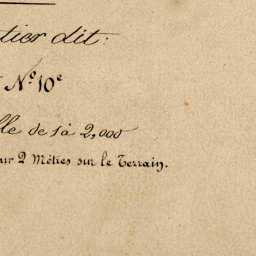 tier dit:
N° 10e
lle de 1 à 2,000
ur 2 Mètres sur le Terrain.